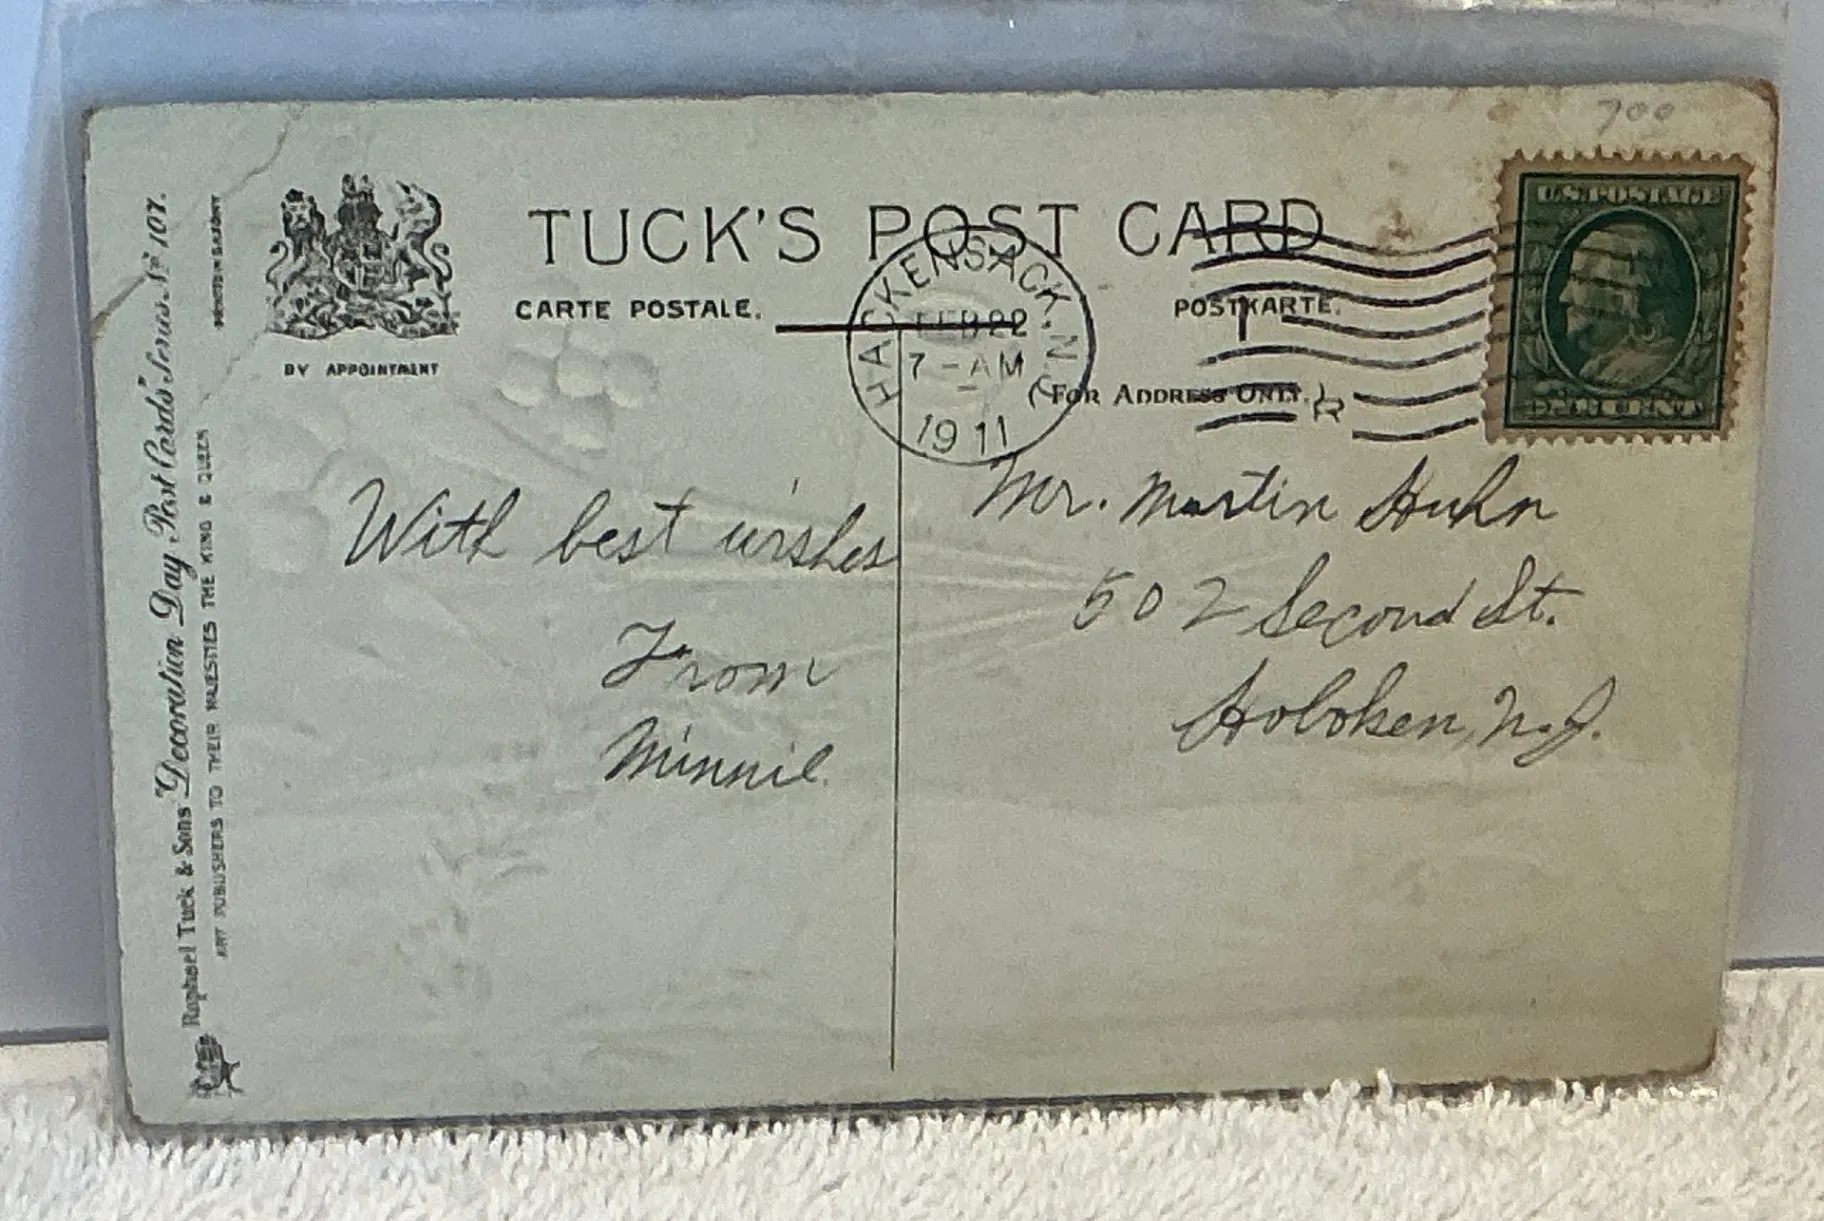 700
U.S. POSTAGE
ONE CENT
TUCK'S POST CARD
CARTE POSTALE.
POSTKARTE.
(FOR ADDRESS ONLY.)
BY APPOINTMENT
HACKENSACK, N.
FEB 22
7 - AM
1911
Raphael Tuck & Sons' "Decoration Day" Post Cards" Series Nº 107.
ART PUBLISHERS TO THEIR MAJESTIES THE KING & QUEEN
With best wishes
From
Minnie.
Mr. Martin Huhn
502 Second St.
Hoboken, N.J.